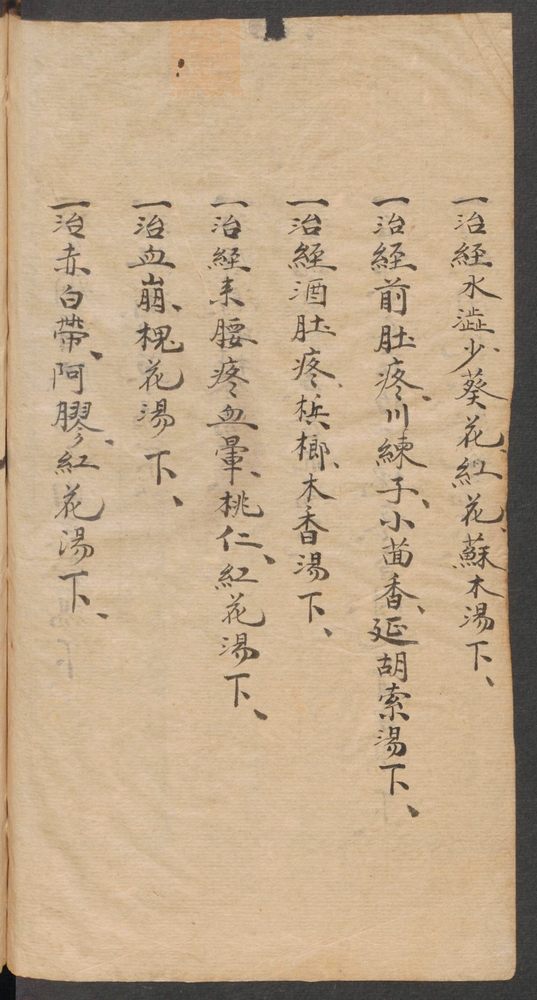 一治經水澁少、葵花、紅花、蘇木湯下、
一治經前肚疼、川練子、小茴香、延胡索湯下、
一治經酒肚疼、梹榔、木香湯下、
一治經来腰疼血暈、桃仁、紅花湯下、
一治血崩、槐花湯下、
一治赤白帶、阿膠、紅花湯下、